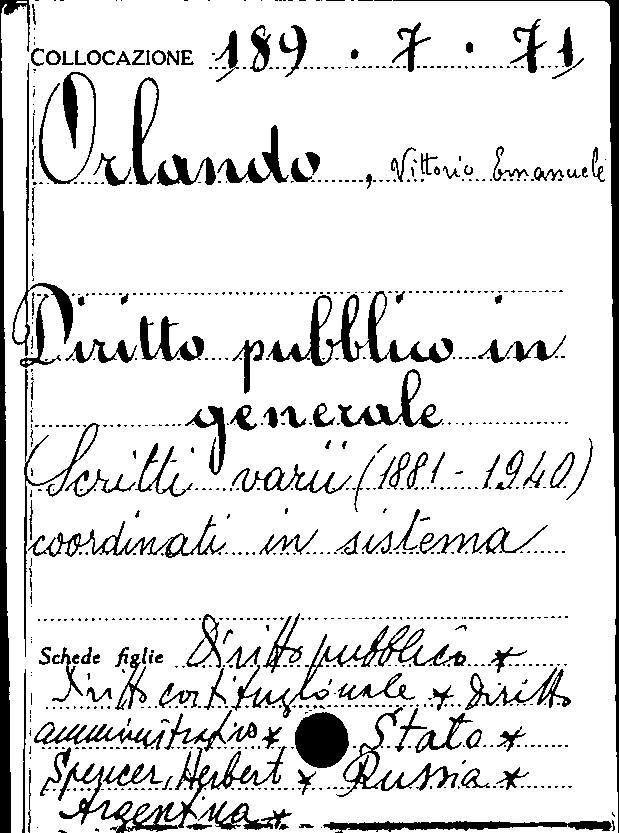 COLLOCAZIONE 189 . 7 . 71
Orlando, Vittorio Emanuele
Diritto pubblico in
generale
Scritti varii (1881 - 1940)
coordinati in sistema
Schede figlie Diritto pubblico *
Diritto costituzionale * Diritto
amministrativo * Stato *
Spencer, Herbert * Russia *
Argentina *